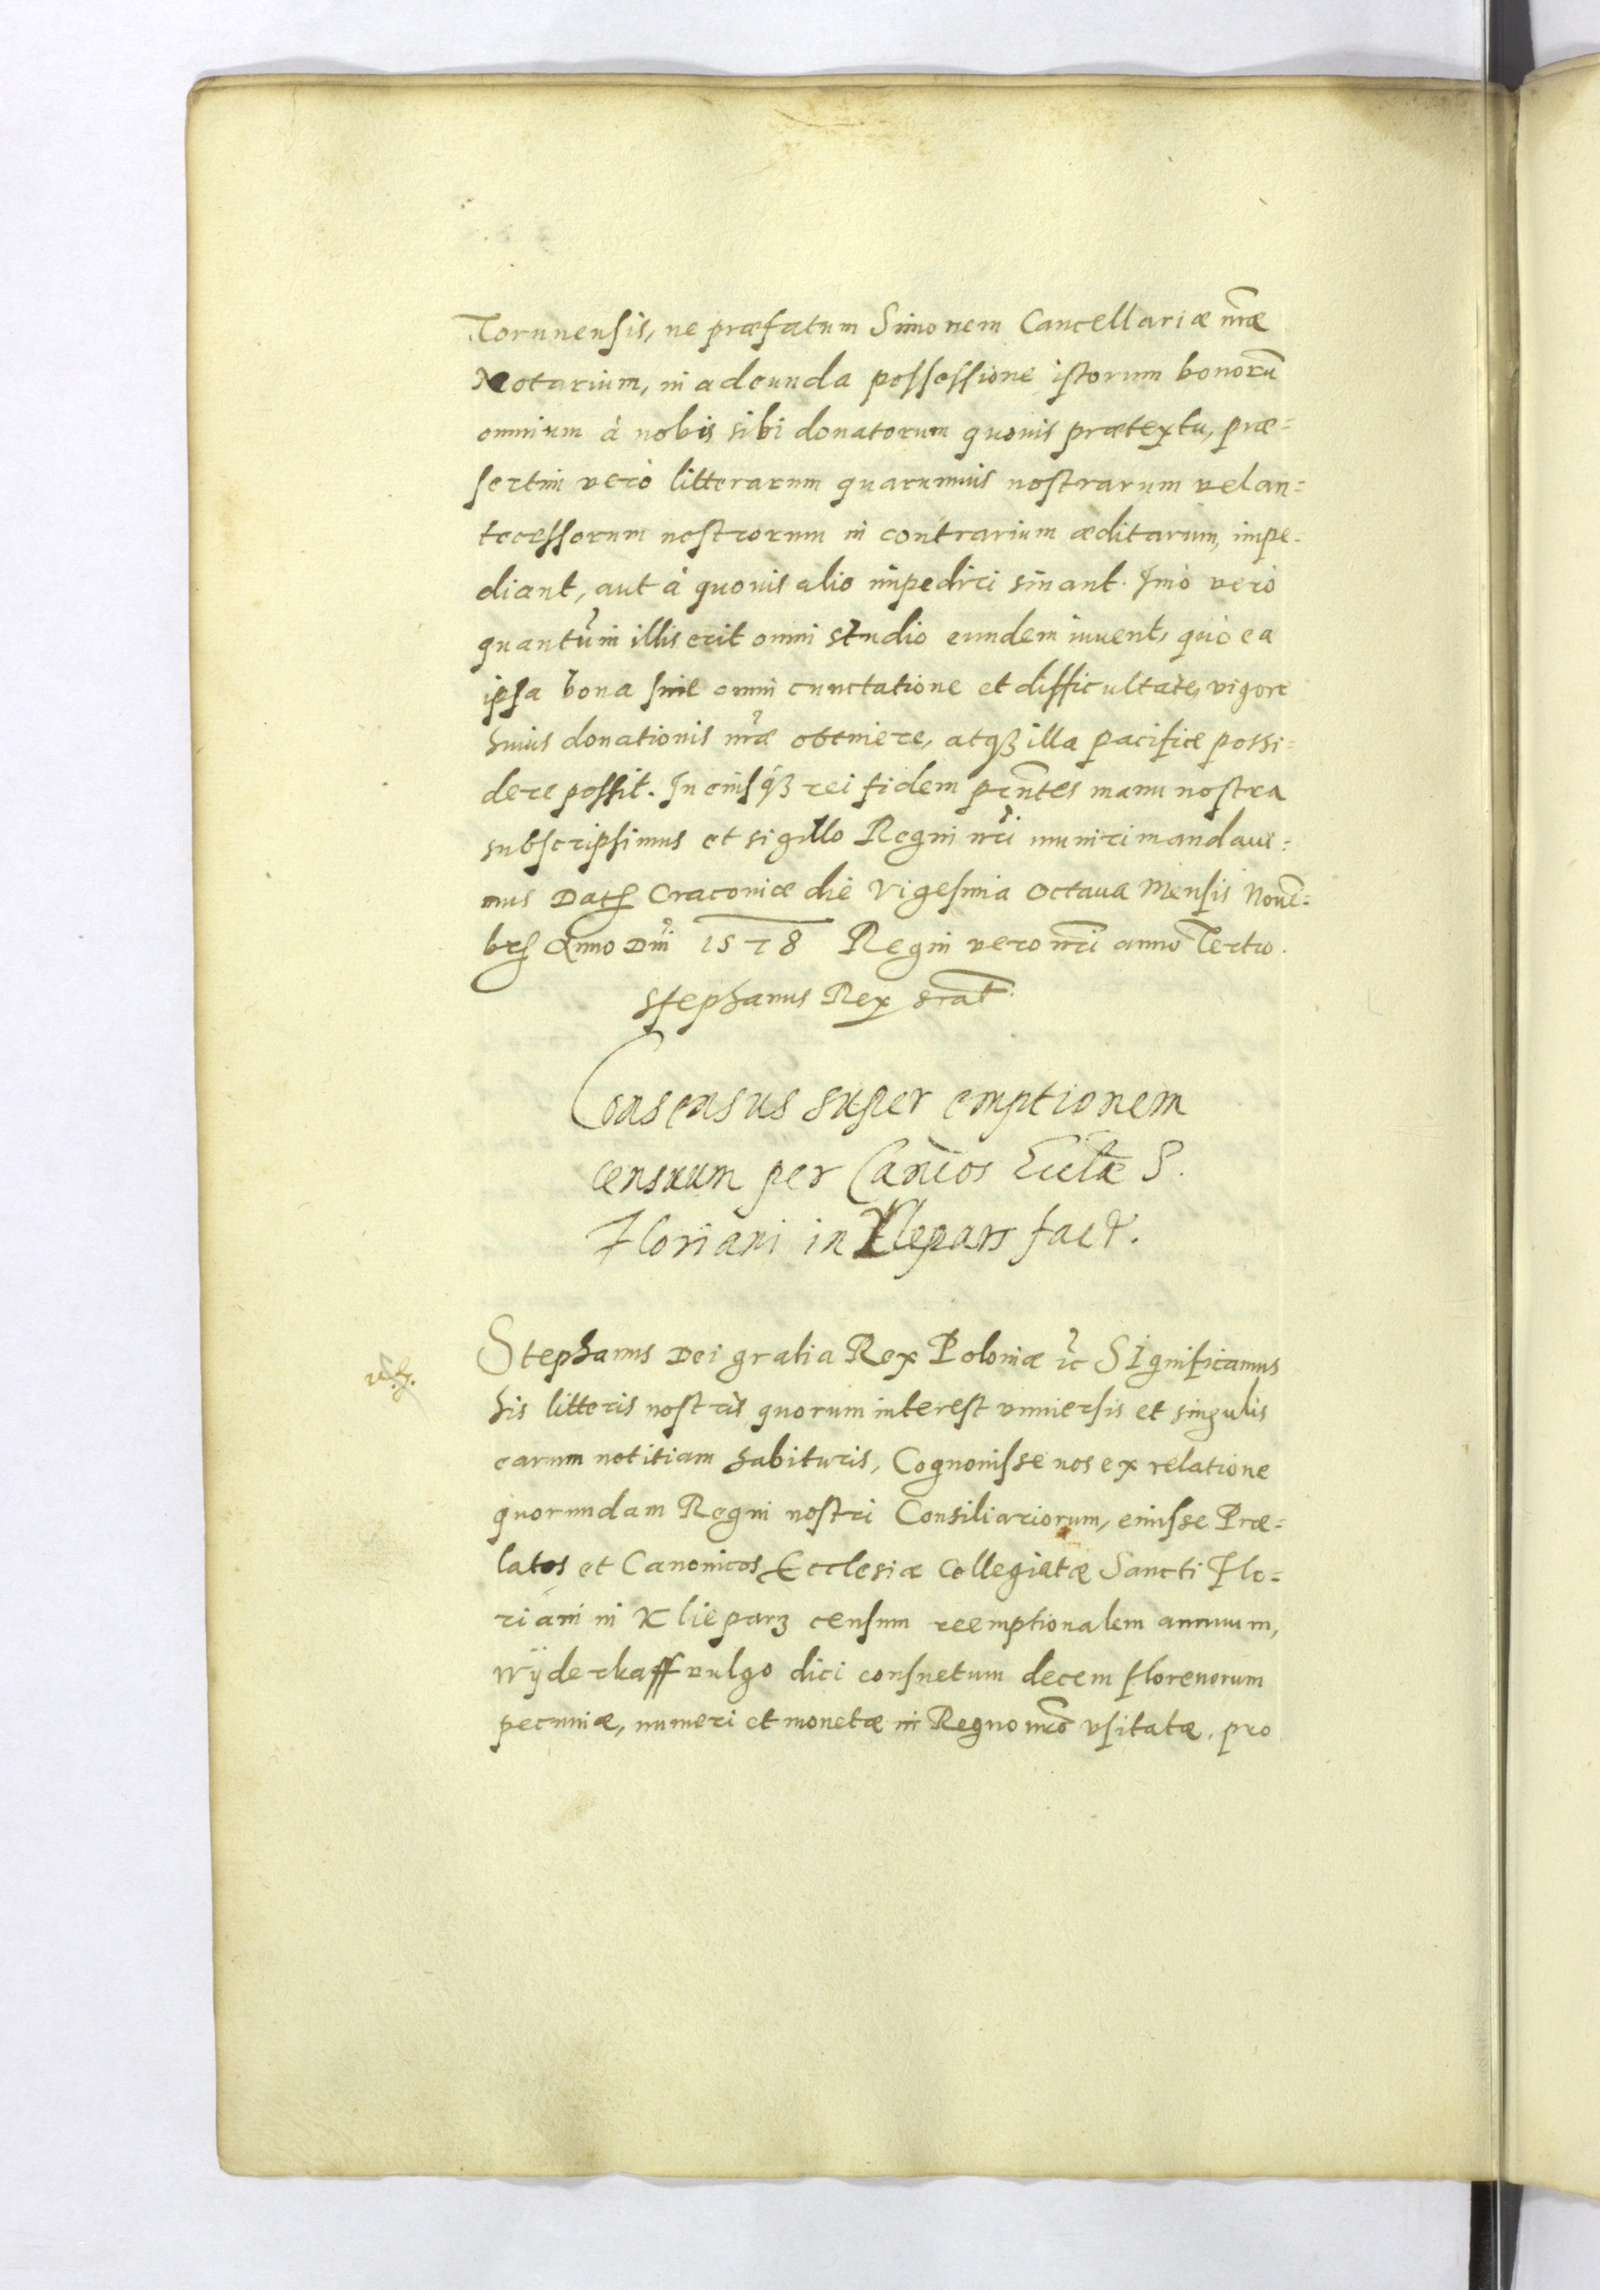 Torunensis, ne præfatum Simonem Cancellariæ nr̃æ
Notarium, in adeunda possessione istorum bonorũ
omnium à nobis sibi donatorum quouis prætextu, præ=
sertim verò litterarum quarumuis nostrarum vel an=
tecessorum nostrorum in contrarium æditarum, impe-
diant, aut à quouis alio impediri sinant. Imò verò
quantũ in illis erit omni studio eundem iuuent, quò ea
ipsa bona sine omni cunctatione et difficultate, vigore
huius donationis nr̃æ obtinere, atqꝫ illa pacifice possi=
dere possit. In cuiusqꝫ rei fidem prñtes manu nostra
subscripsimus et sigillo Regni nr̃i muniri mandaui=
mus Datꝭ Cracouiæ die Vigesima Octaua Mensis Nouẽ=
brꝭ Anno Dñi 1578 Regni vero nr̃i anno Tertio.
Stephanus Rex srat̃
Consensus super emptionem
censuum per Canĩcos Eccl̃æ S.
Floriani in Klepars fact.
Stephanus Dei gratia Rex Poloniæ ꝛc̃ Significamus
his litteris nostris quorum interest vniuersis et singulis
earum notitiam habituris, Cognouisse nos ex relatione
quorundam Regni nostri Consiliariorum, emisse Præ=
latos et Canonicos Ecclesiæ Collegiatæ Sancti Flo=
riani in Klieparz censum reemptionalem annuum,
Wÿderkaff vulgo dici consuetum decem florenorum
pecuniæ, numeri et monetæ in Regno nr̃o vsitatæ. pro